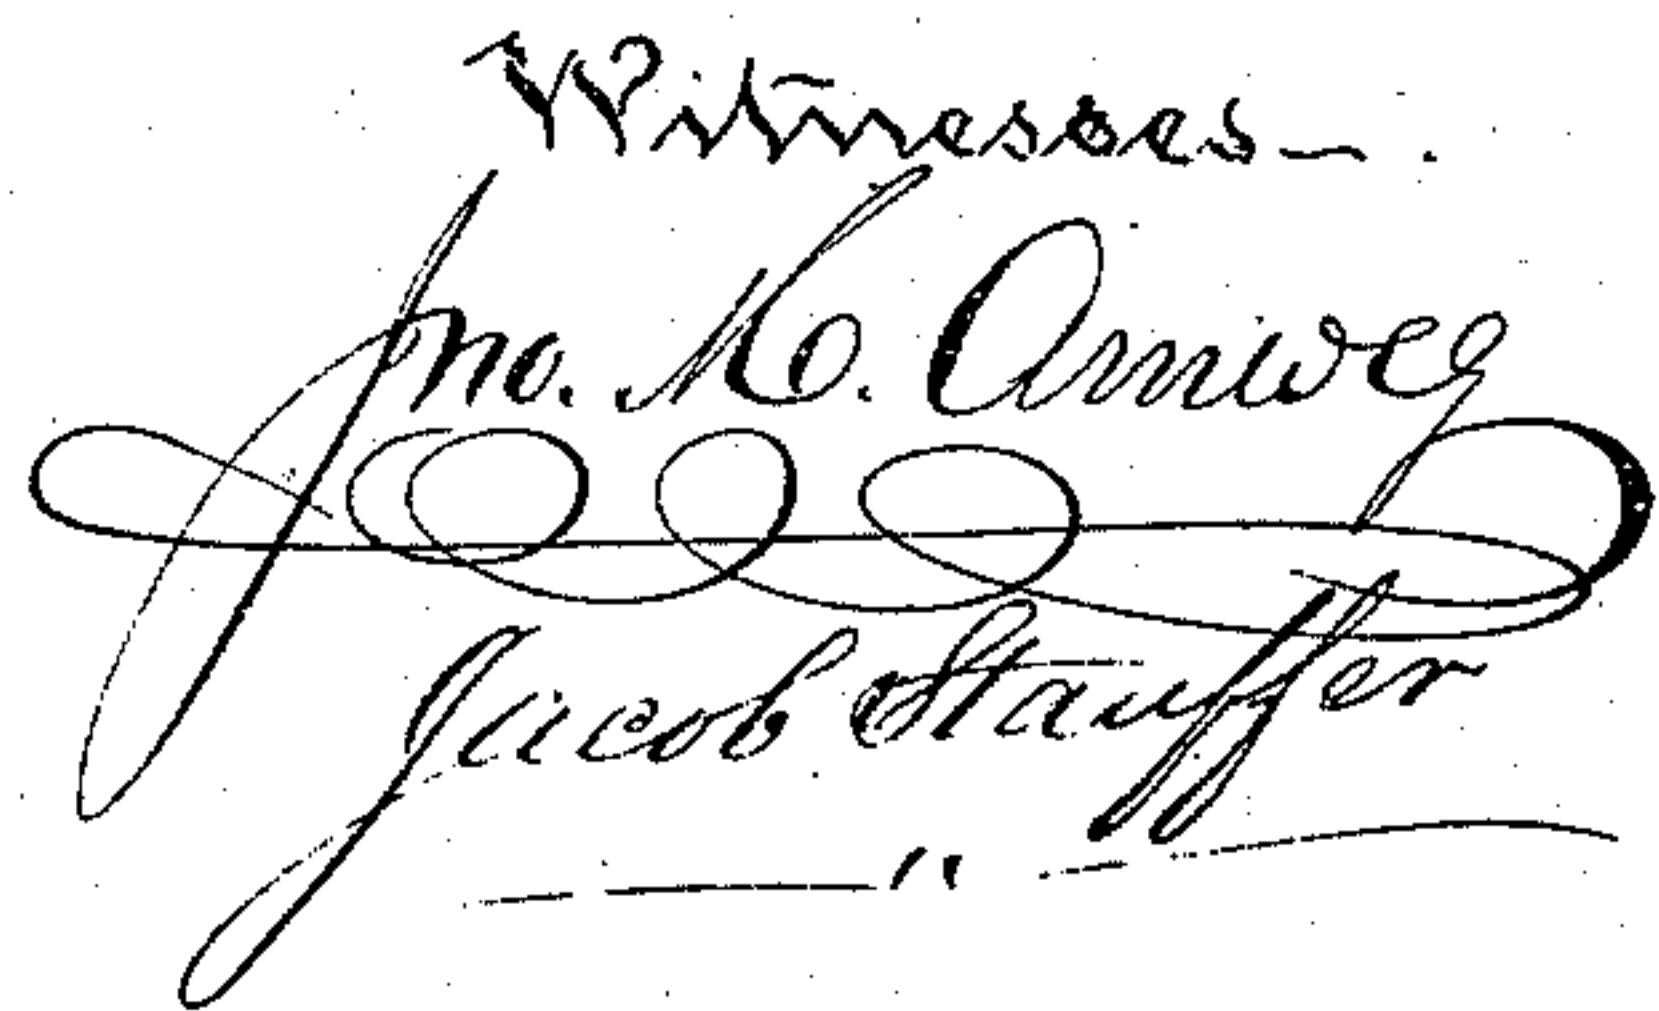 Witnesses.
Jno. M. Amweg
Jacob Stauffer